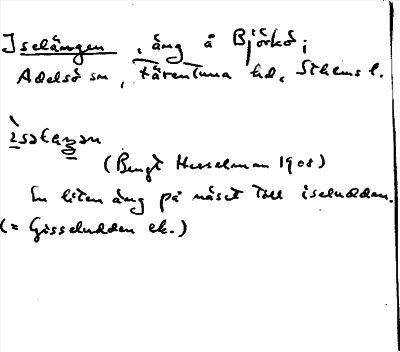 Iselängen, äng å Björkö;
Adelsö sn, Färentuna hd, Sthems l.
(Bengt Hesselman 1908)
En liten äng på näset till iseludden.
(= Gisseludden ek.)